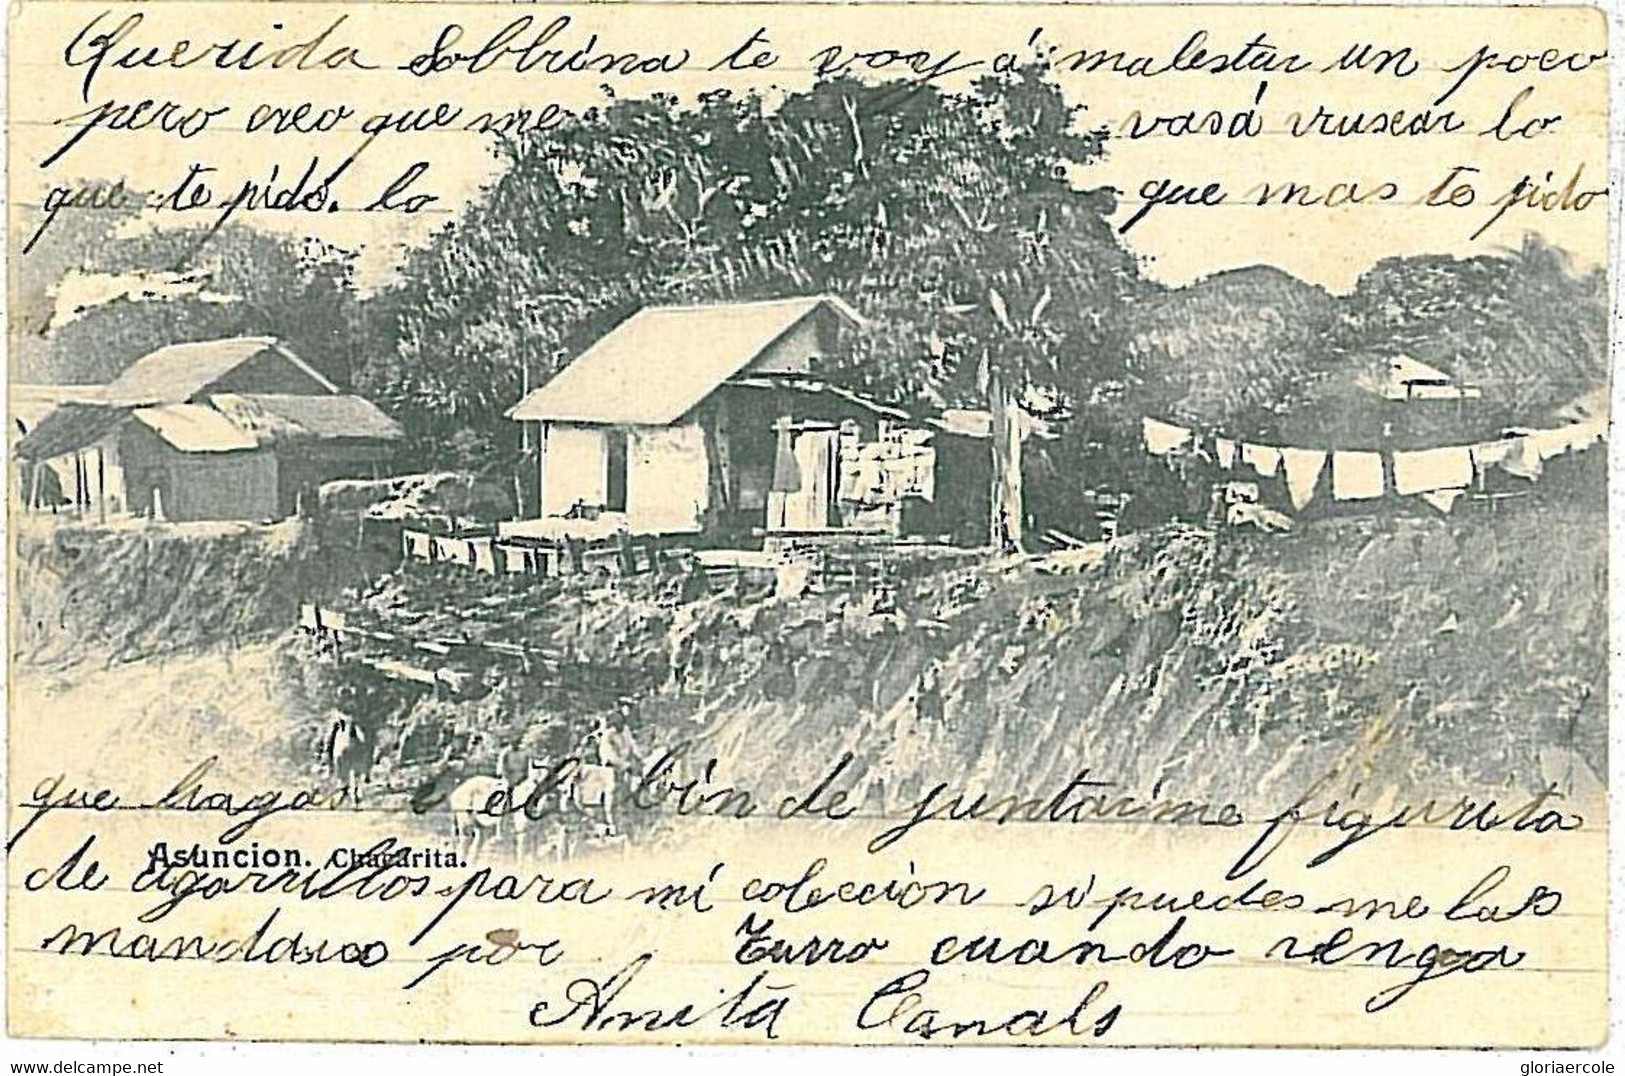 Querida Sobbrina te voy á malestar un poco
pero creo que me vasá vruscar lo
que te pido. lo que mas te pido
que hagas el bin de juntarme figurita
Asuncion. Chacarita.
de sigarrillos para mi coleccion si puedes me las
mandaras por Turro cuando venga
Anita Canals
gloriaercole